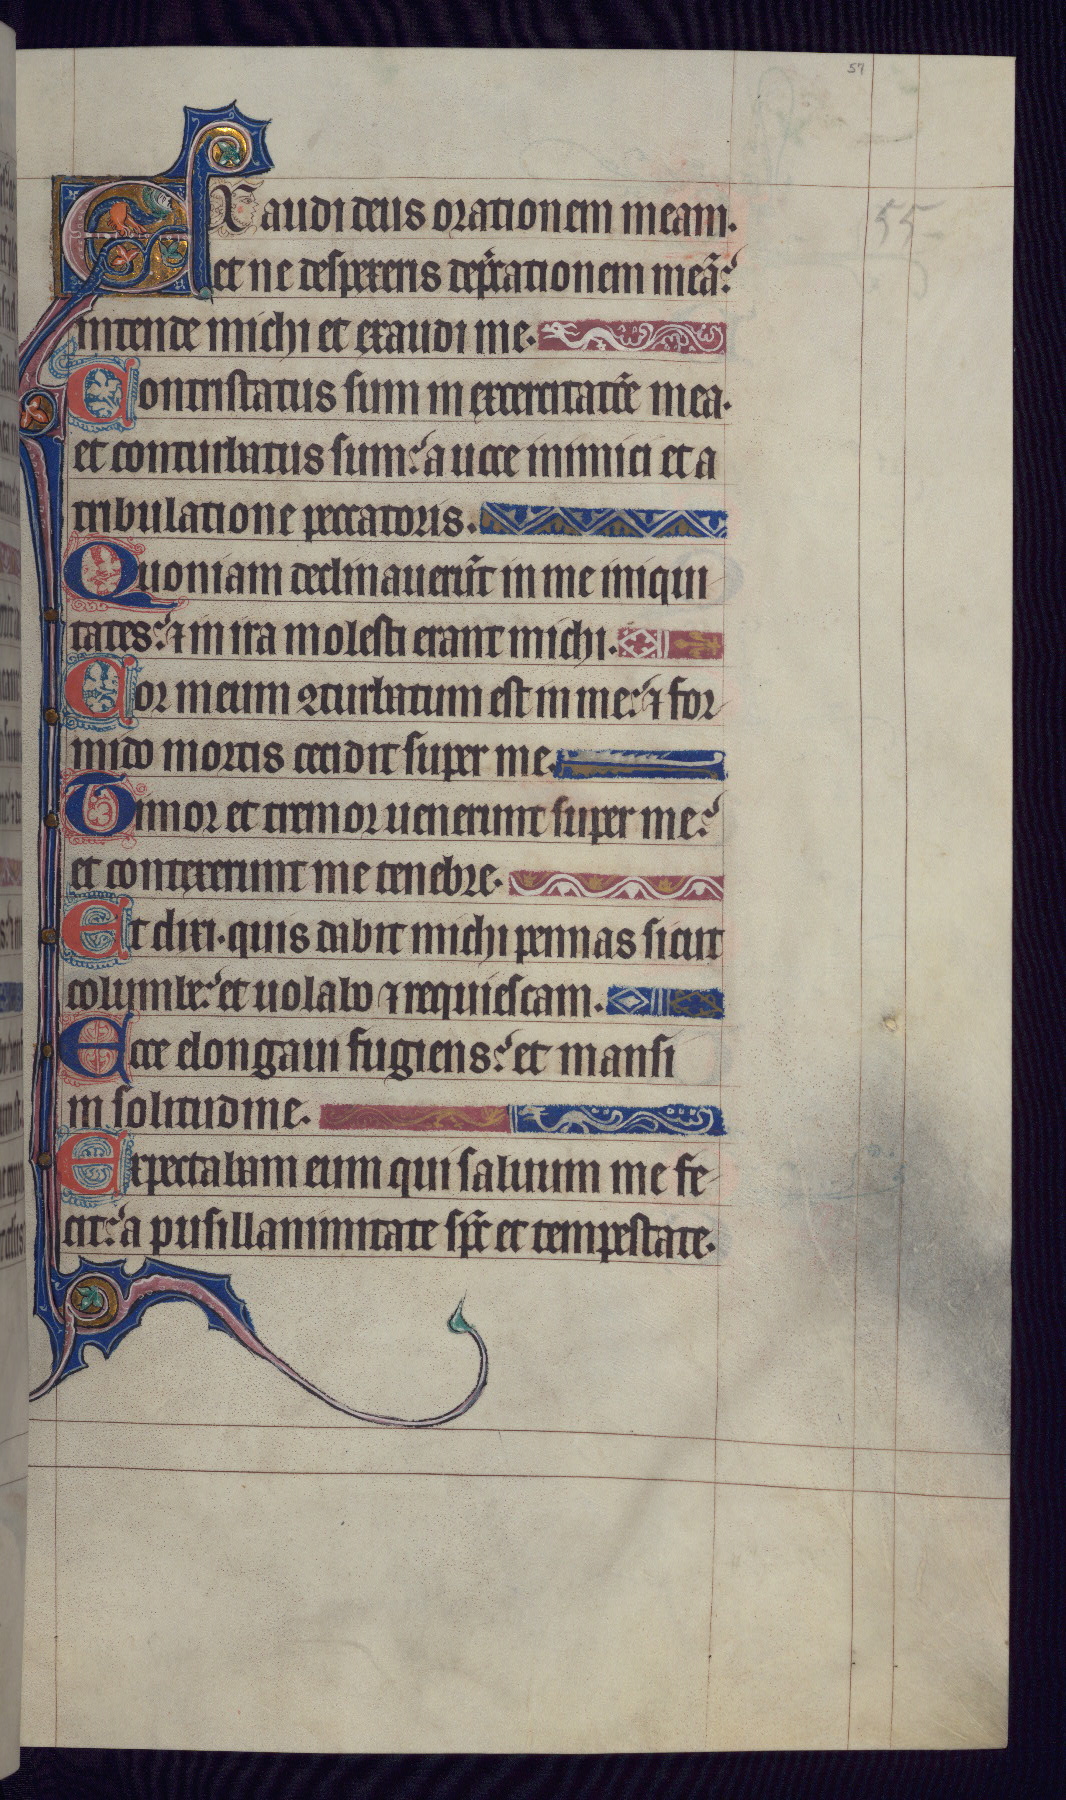 57
Exaudi deus orationem meam.
55
et ne despexeris dep̃cationem meã:
intende michi et exaudi me.
Contristatus sum in excercitatiõe mea.
et conturbatus sum: a uoce inimici et a
tribulatione peccatoris.
Quoniam declinauerũt in me iniqui
tates: ⁊ in ira molesti erant michi.
Cor meum ꝯturbatum est in me: ⁊ for
mido mortis cecidit super me.
Timor et tremor uenerunt super me:
et contexerunt me tenebre.
Et dixi. quis dabit michi pennas sicut
columbe: et uolabo ⁊ requiescam.
Ecce elongaui fugiens: et mansi
in solitudine.
Expectabam eum qui saluum me fe
cit: a pusillanimitate sp̃c et tempestate.